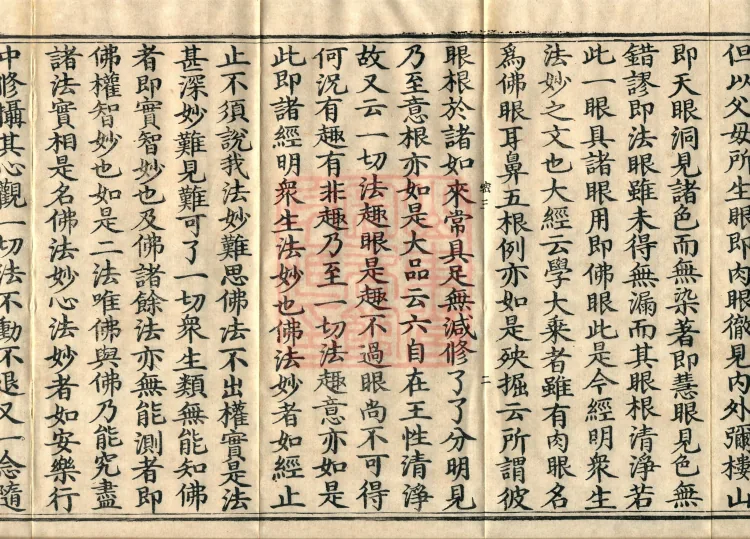 但以父母所生眼即肉眼徹見內外彌樓山
即天眼洞見諸色而無染著即慧眼見色無
錯謬即法眼雖未得無漏而其眼根清淨若
此一眼具諸眼用即佛眼此是今經明衆生
法妙之文也大經云學大乘者雖有肉眼名
爲佛眼耳鼻五根例亦如是殃掘云所謂彼
二
眼根於諸如來常具足無減修了了分明見
乃至意根亦如是大品云六自在王性清淨
故又云一切法趣眼是趣不過眼尚不可得
何況有趣有非趣乃至一切法趣意亦如是
此即諸經明衆生法妙也佛法妙者如經止
止不須說我法妙難思佛法不出權實是法
甚深妙難見難可了一切衆生類無能知佛
者即實智妙也及佛諸餘法亦無能測者即
佛權智妙也如是二法唯佛與佛乃能究盡
諸法實相是名佛法妙心法妙者如安樂行
中修攝其心觀一切法不動不退又一念隨